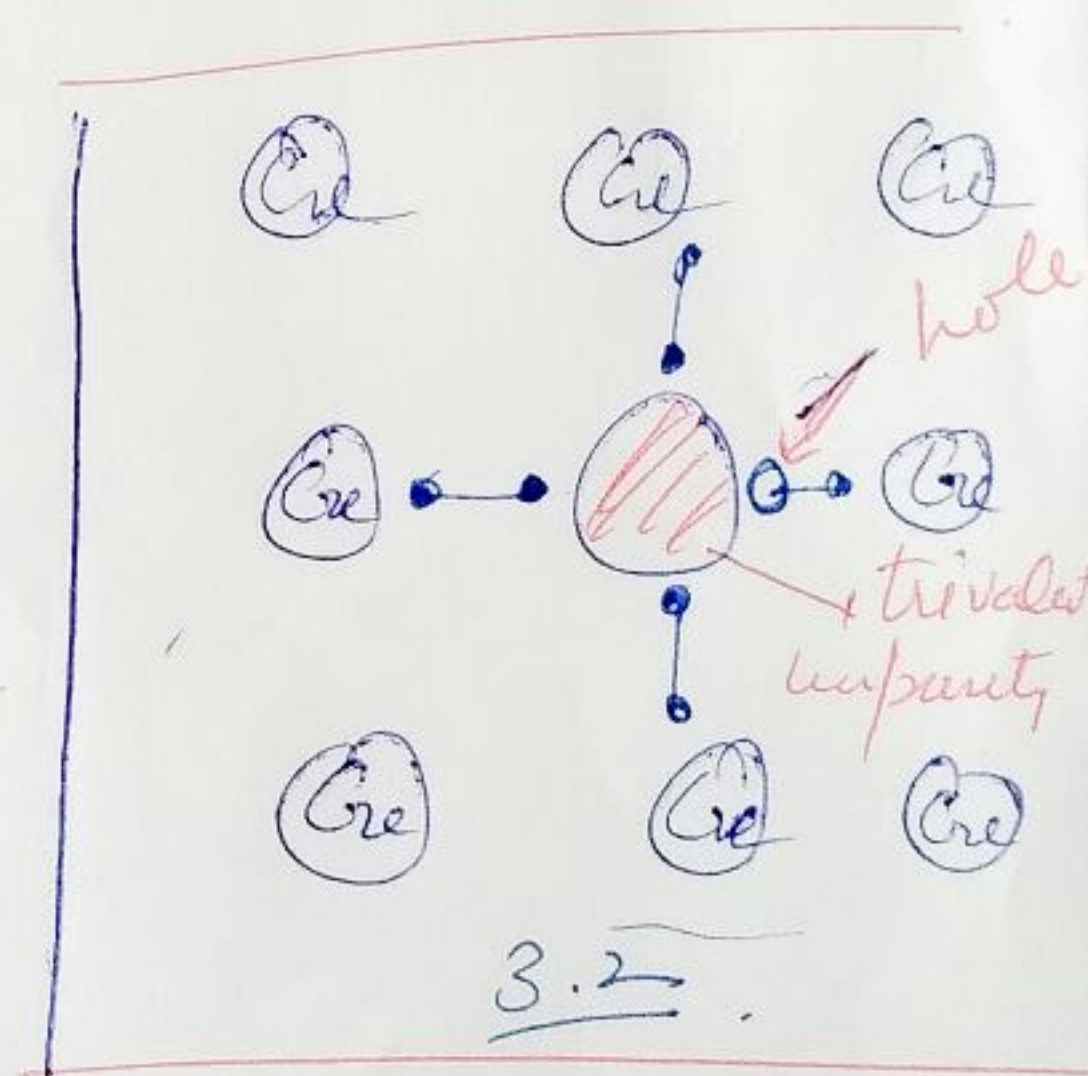 Ge Ge Ge
hole
Ge Ge
trivalent
impurity
Ge Ge Ge
3.2